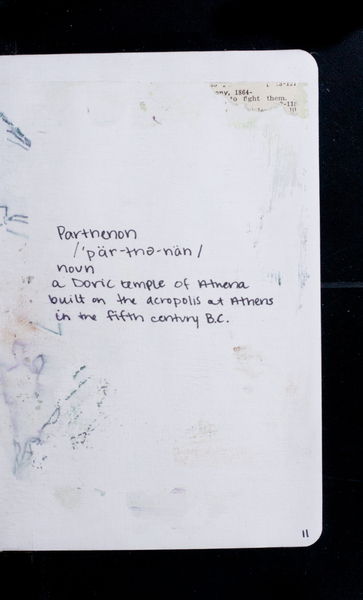 ny, 1864-
to fight them.
Parthenon
/'pär-thə-nän/
noun
a Doric temple of Athena
built on the acropolis at Athens
in the fifth century B.C.
11